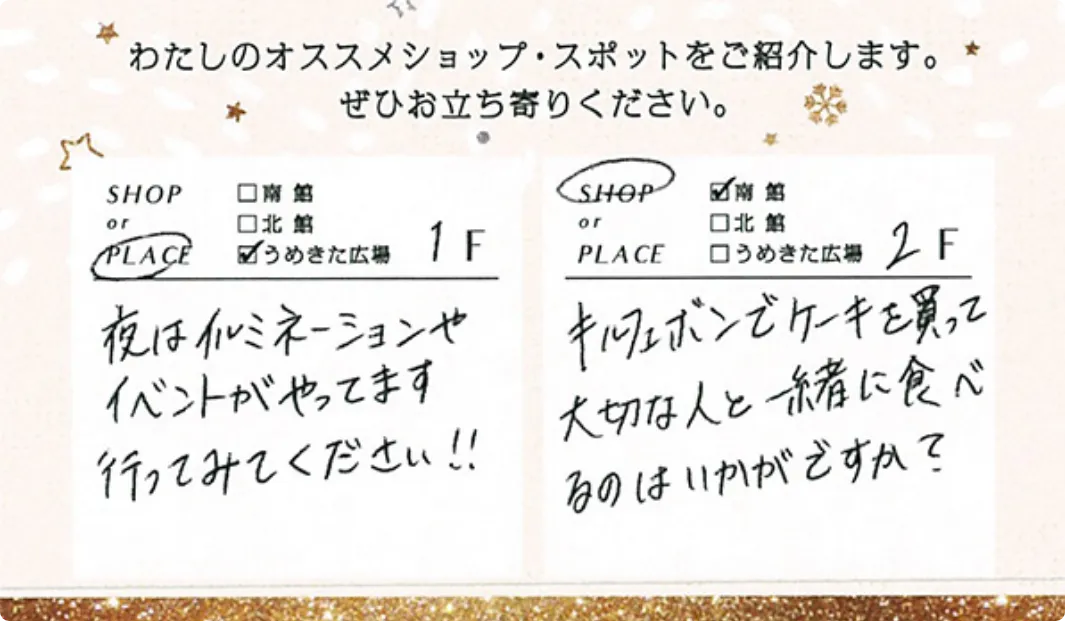 わたしのオススメショップ・スポットをご紹介します。
ぜひお立ち寄りください。
SHOP □南館
or □北館
PLACE ☑うめきた広場 1F
夜はイルミネーションや
イベントがやってます
行ってみてください!!
SHOP ☑南館
or □北館
PLACE □うめきた広場 2F
キルフェボンでケーキを買って
大切な人と一緒に食べ
るのはいかがですか?